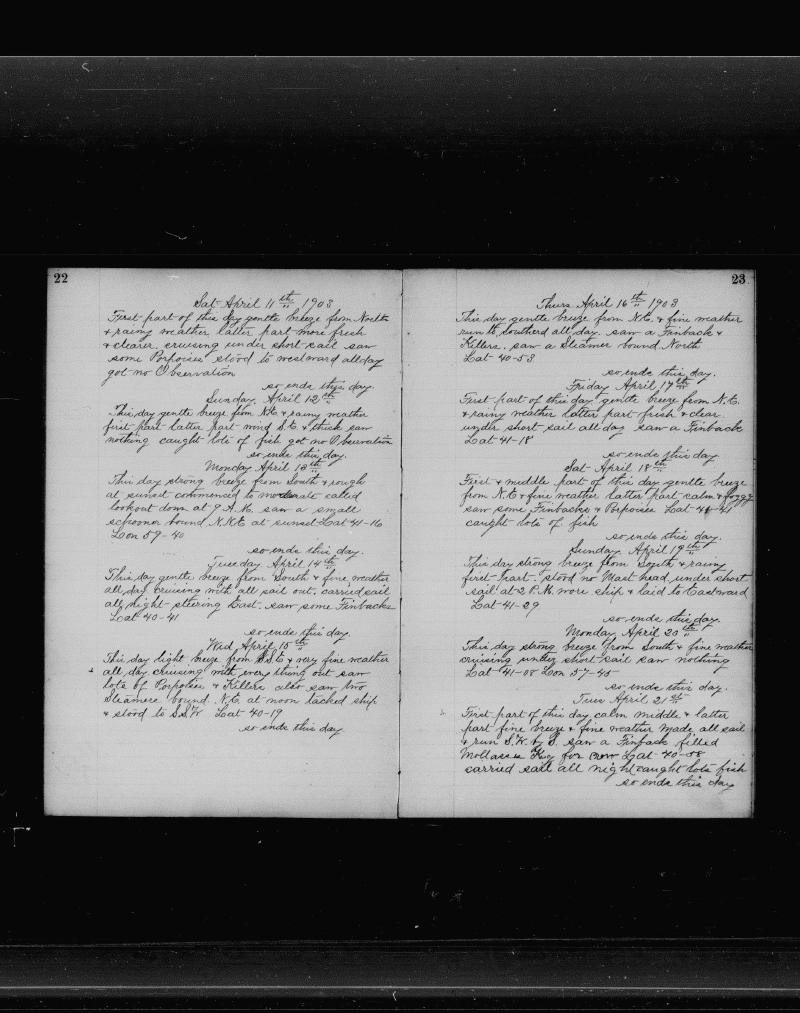 22
Sat April 11th 1903
First part of this day gentle breeze from North
& rainy weather latter part more fresh
& clearer. cruising under short sail saw
some Porpoises stood to westward all day
got no Observation
so ends this day.
Sunday. April 12th
This day gentle breeze from N.E. & rainy weather
first part latter part wind S.E. & thick saw
nothing caught lots of fish got no Observation
so ends this day.
Monday April 13th
This day strong breeze from South & rough
at sunset commenced to moderate called
lookout down at 9 A.M. saw a small
schooner bound N.N.E. at sunset Lat 41-16
Lon 59-40
so ends this day.
Tuesday April 14th
This day gentle breeze from South & fine weather
all day cruising with all sail out. carried sail
all night steering East. saw some Finbacks
Lat 40-41
so ends this day.
Wed April 15th
This day light breeze from S.S.E & very fine weather
all day cruising with every thing out saw
lots of Porpoises & Killers also saw two
Steamers bound N.E. at noon tacked ship
& stood to S.S.W Lat 40-19
so ends this day
23
Thurs April 16th 1903
This day gentle breeze from N.E. & fine weather
run to Southerd all day. saw a Finback &
Killers. saw a Steamer bound North
Lat 40-53
so ends this day.
Friday April 17th
First part of this day gentle breeze from N.E.
& rainy weather latter part fresh & clear.
under short sail all day saw a Finback
Lat 41-18
so ends this day
Sat April 18th
First & middle part of this day gentle breeze
from N.E & fine weather latter part calm & foggy
saw some Finbacks & Porpoises Lat 41-41
caught lots of fish
so ends this day.
Sunday April 19th
This day strong breeze from South & rainy
first part. stood no Mast head under short
sail at 2 P.M. wore ship & laid to Eastward
Lat 41-29
so ends this day.
Monday April 20th
This day strong breeze from South & fine weather
cruising under short sail saw nothing
Lat 41-08 Lon 57-45
so ends this day.
Tues April 21st
First part of this day calm middle & latter
part fine breeze & fine weather made all sail
& run S.W. by S. saw a Finback filled
Mollasses Keg for Lat 40-58
carried sail all night caught lots fish
so ends this day